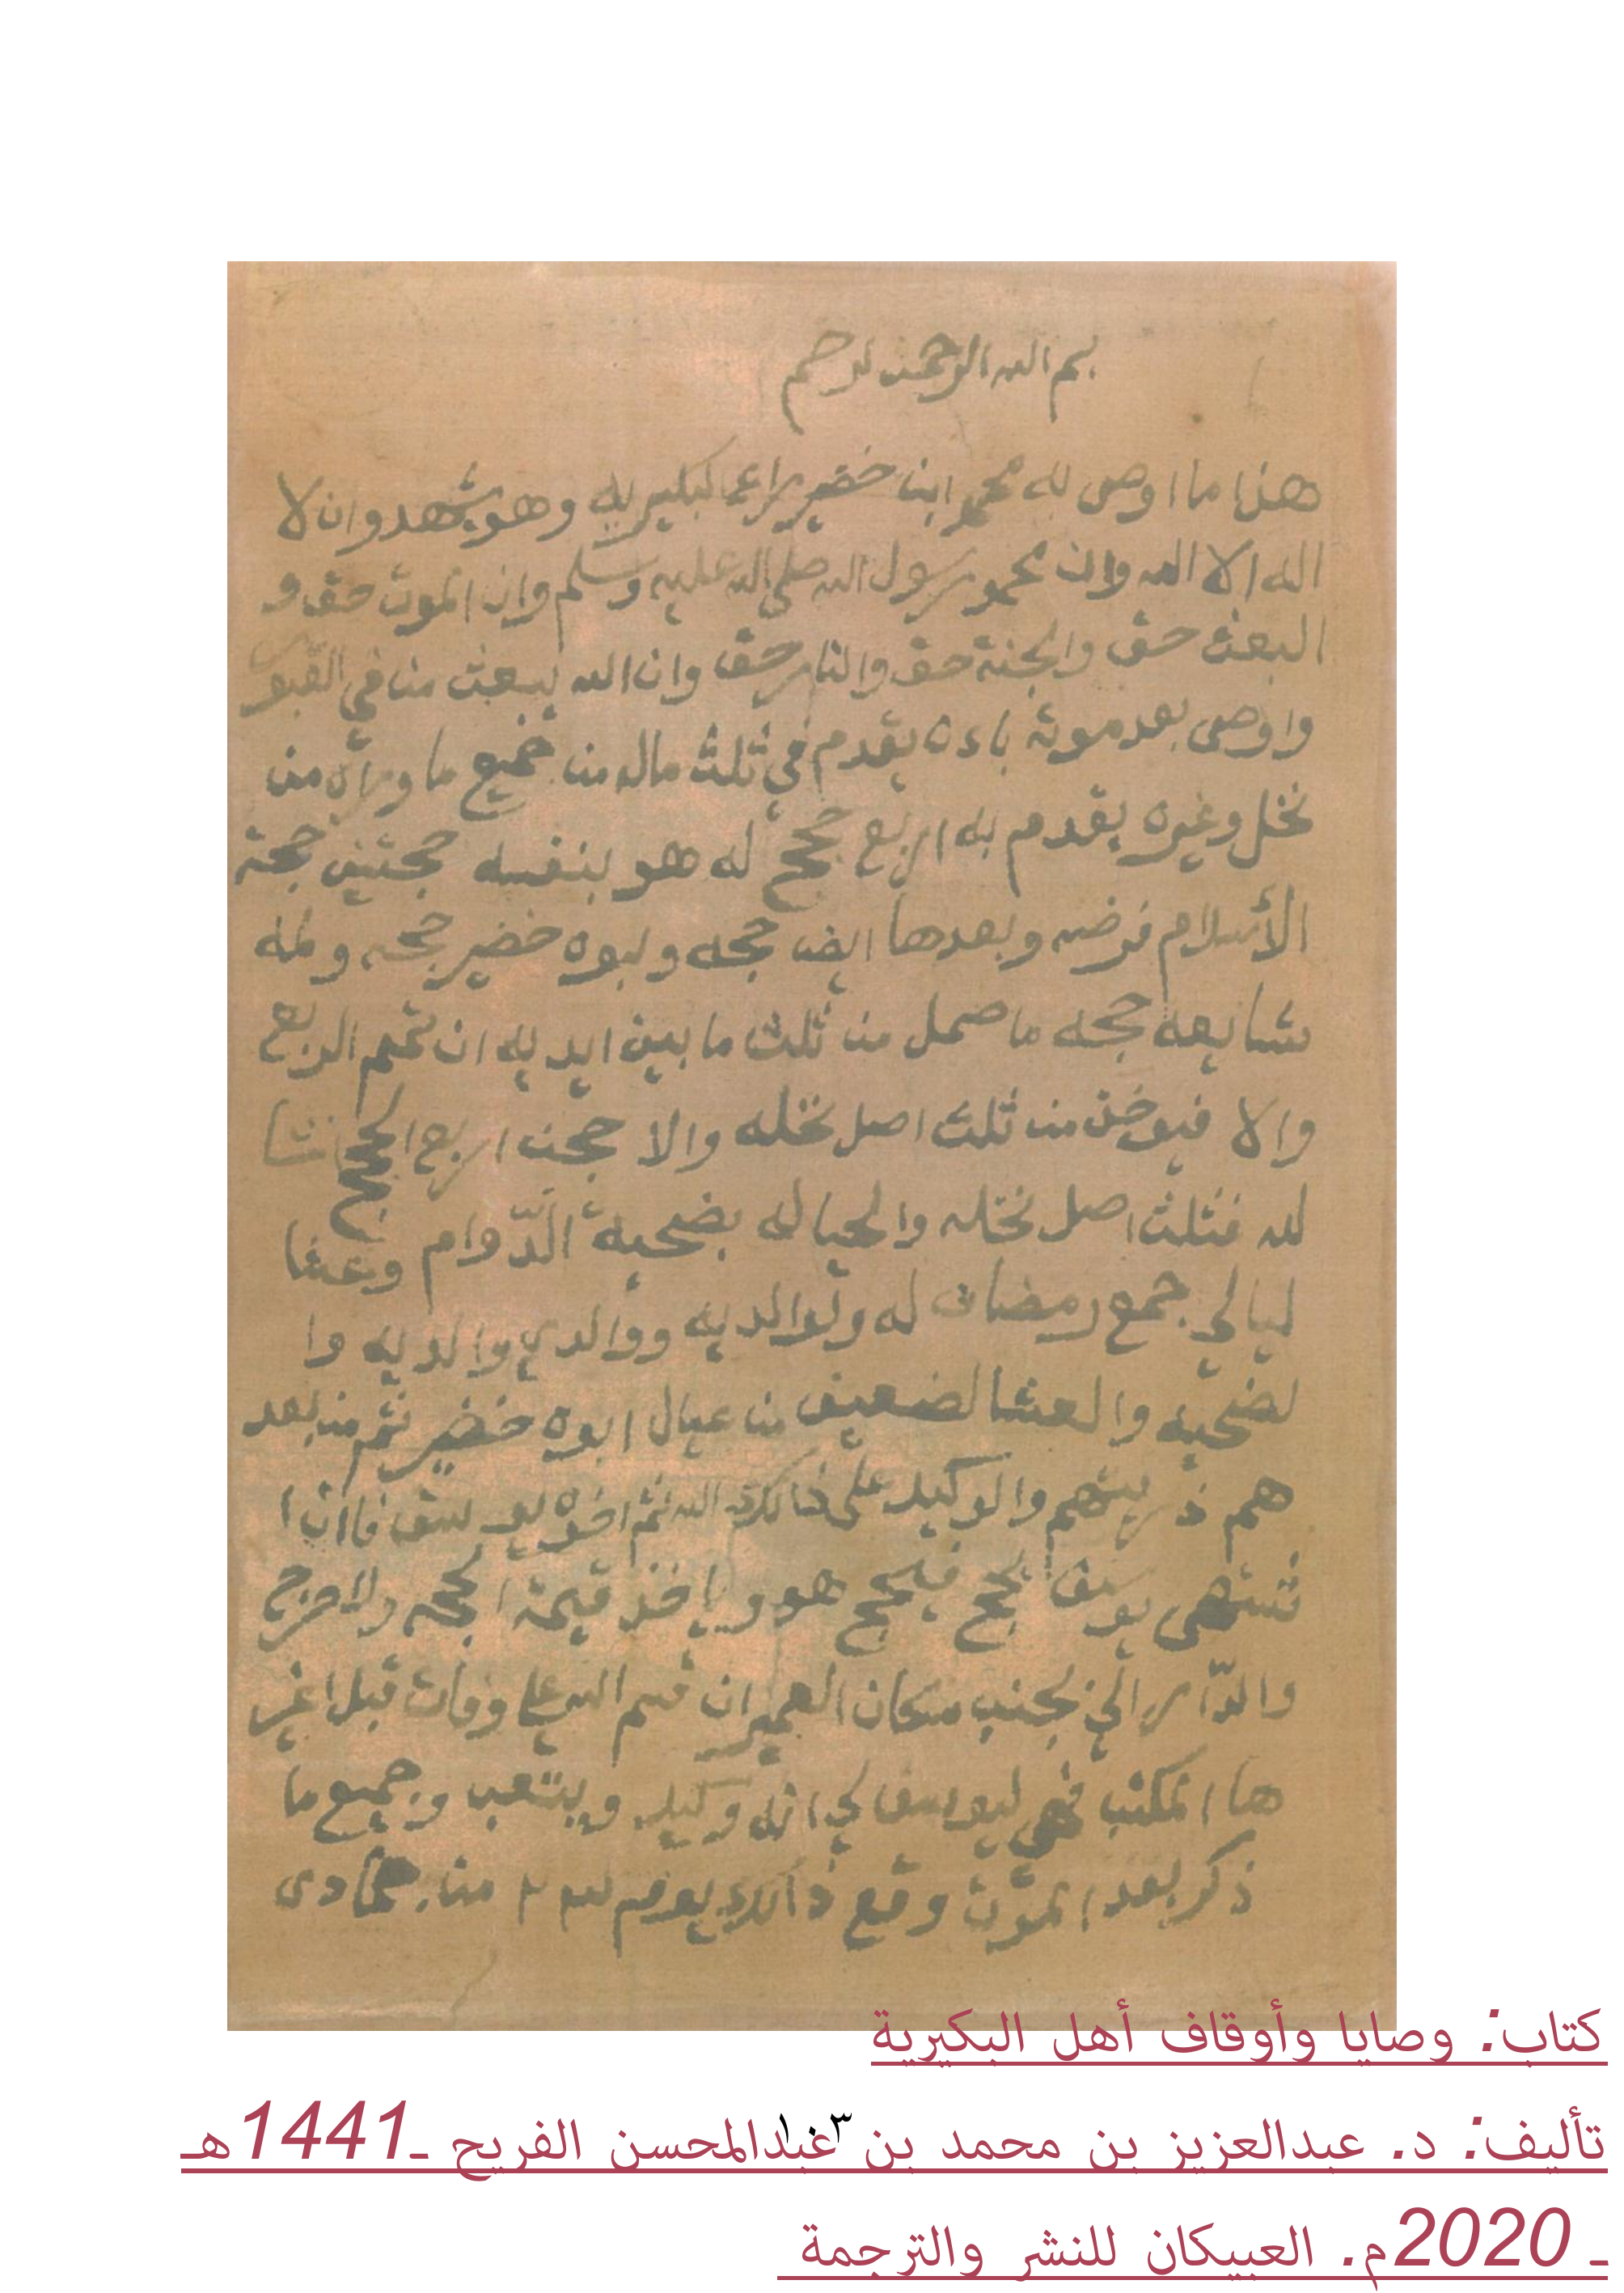 بسم الله الرحمن لرحيم
هذا ما اوصى به محمد ابن خضير راعي البكيريه وهو يشهد وان لا
اله الا الله وان محمد رسول الله صلى الله عليه وسلم وان الموت حق و
البعث حق والجنة حق والنار حق وان الله يبعث من في القبور
واوصى بعد موته بانه يقدم في ثلث ماله من جميع ما وراه من
نخل وغيره يقدم به اربع حجج له هو بنفسه حجتين حجة
الأسلام فرضه وبعدها ايضا حجه ولبوه خضير حجه ولمه
شايعه حجه ما حمل من ثلث ما بين ايديه ان تمم الربع
والا فيوخذ من ثلث اصل نخله والا حجن اربع الحجج انشا
لله فثلث اصل نخله والحيا له بضحية الدّوام وعشا
ليالي جمع رمضان له ولوالديه ووالدي والديه وا
لضحيه والعشا لضعيف من عيال ابوه خضير ثم من بعد
هم ذريتهم والوكيل على ذالك الله ثم اخوه يوسف فاان ا
شتهى يوسف يحج فيحج هو وياخذ قيمة الحجه والا خرج
والدّار الي بجنب مكان العمير ان قسم الله علي وفات قبل اغير
ها المكتب فهي ليوسف لي انه وكيل ويتعب وجميع ما
ذكر بعد الموت وقع ذالك يوم من جمادى
كتاب: وصايا وأوقاف أهل البكيرية
تأليف: د. عبدالعزيز بن محمد بن عبدالمحسن الفريح ـ1441هـ
١٠٣
ـ 2020م. العبيكان للنشر والترجمة